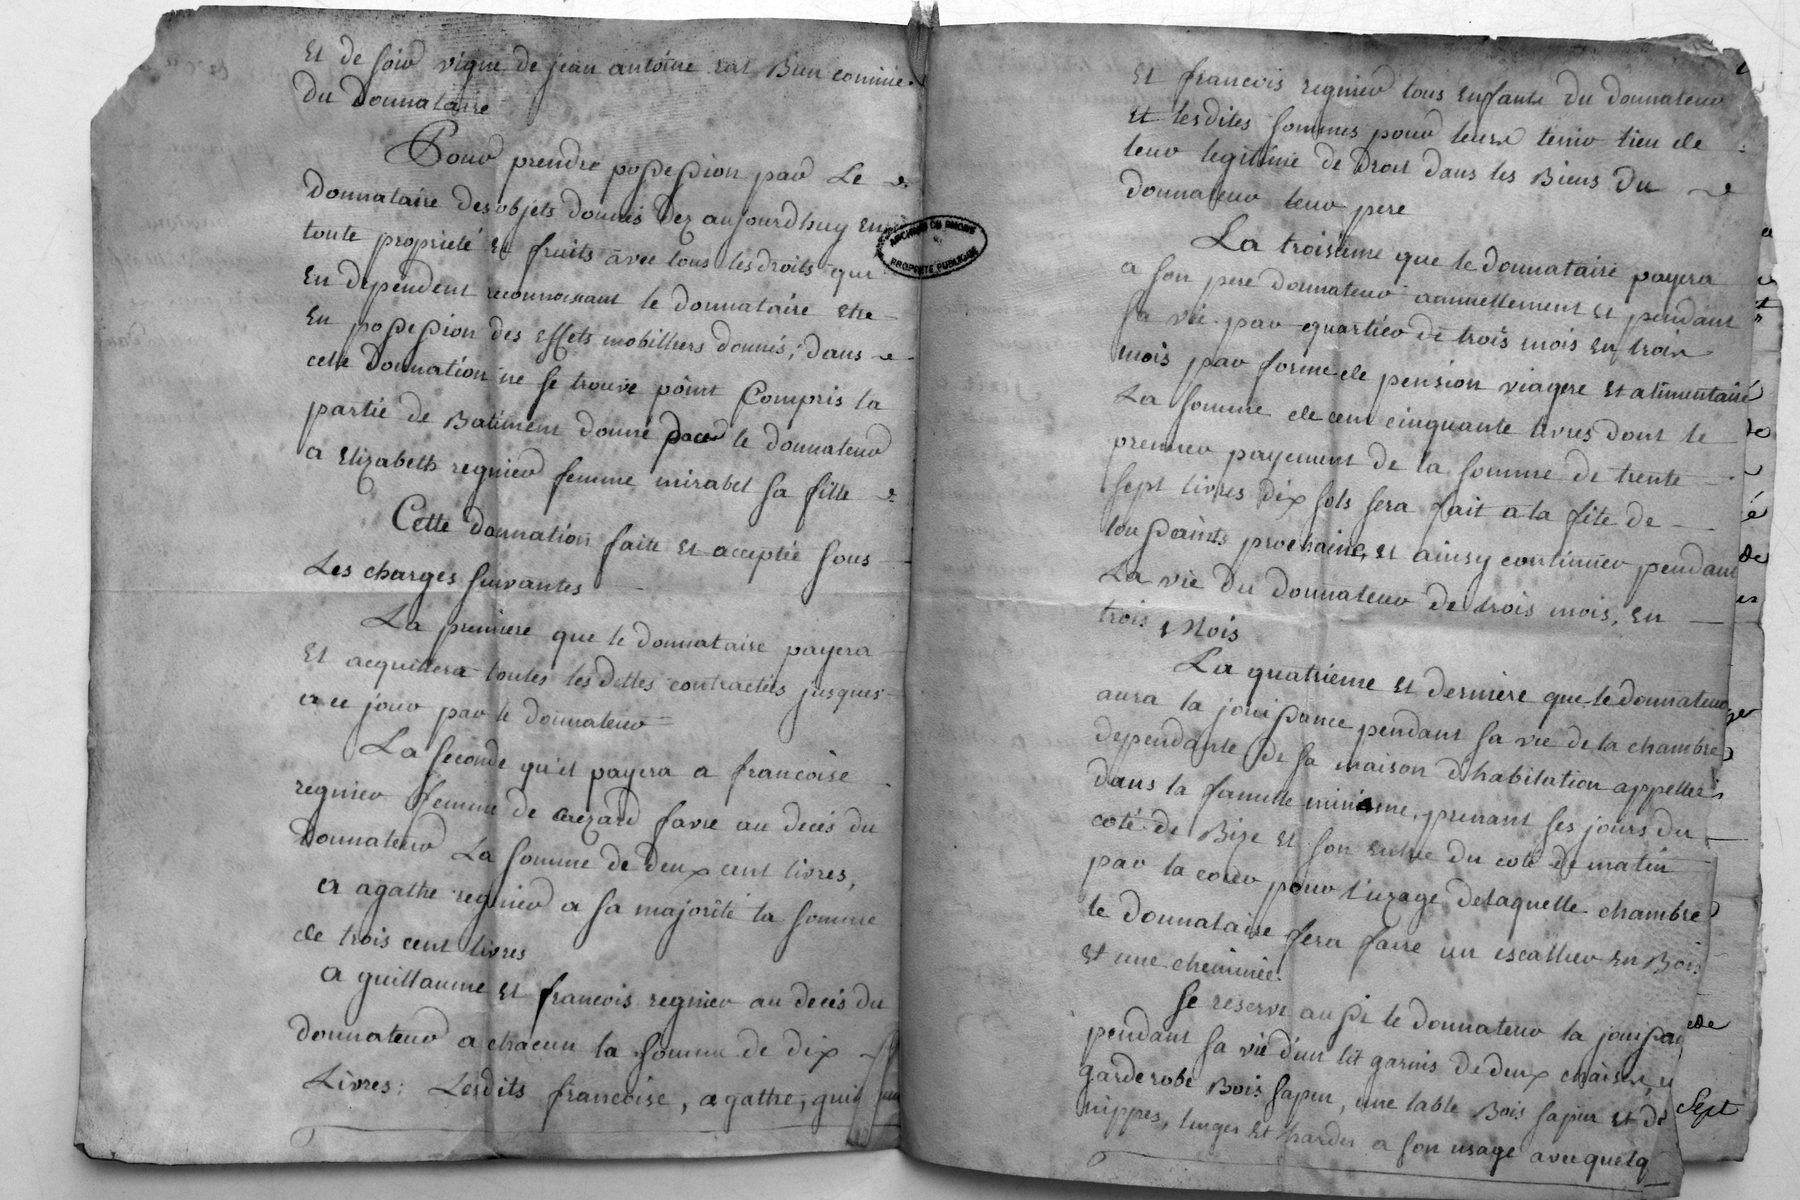 Et de soir vigne de jean antoine rat Bun comme
du donnataire
Pour prendre possession par Le
donnataire des objets donnés dez aujourdhuy en
toute proprieté et fruits avec tous les droits qui
En dependent reconnoissant le donnataire etre
En possession des Effets mobilliers donnés; dans
cette donnation ne se trouve point Compris la
partie de Batiment donné par le donnateur
a Elizabeth regnier femme mirabel sa fille
Cette donnation faite et acceptée sous
Les charges suivantes
La premiere que le donnataire payera
Et acquittera toutes les dettes contractées jusques
a ce jour par le donnateur
La seconde qu'il payera a francoise
regnier femme de favre au deces du
donnateur La somme de deux cent livres,
a agathe regnier a sa majorité la somme
de trois cent livres
a guillaume Et francois regnier au deces du
donnateur a chacun la somme de dix
Livres: Lesdits francoise, agathe, guil
Et francois regnier tous Enfants du donnateur
Et lesdites sommes pour leurs tenir lieu de
leur legitime de droit dans les Biens du
donnateur leur pere
La troisieme que le donnataire payera
a son pere donnateur annuellement et pendant
sa vie par quartier de trois mois en trois
mois par forme de pension viagere et alimentaire
La somme de cent cinquante livres dont le
premier payement de la somme de trente
sept livres dix sols sera fait a la fête de
toussaints prochaine, et ainsy continuer pendant
La vie du donnateur de trois mois, en
trois Mois
La quatrieme et derniere que le donnateur
aura la jouissance pendant sa vie de la chambre
dependante de sa maison dhabitation appellée
dans la famille prenant ses jours du
coté de Bize et son entrée du coté de matin
par la cour pour l'uzage delaquelle chambre
le donnataire fera faire un escallier en Bois
et une cheminée.
Se reserve aussi le donnateur la jouissa
pendant sa vie d'un lit garnis de deux chaises, u
garderobe Bois sapin, une table Bois sapin et de
nippes, linges et hardes a son usage avec quelq
Sept
ARCHIVES DU RHONE
PROPRIETE PUBLIQUE